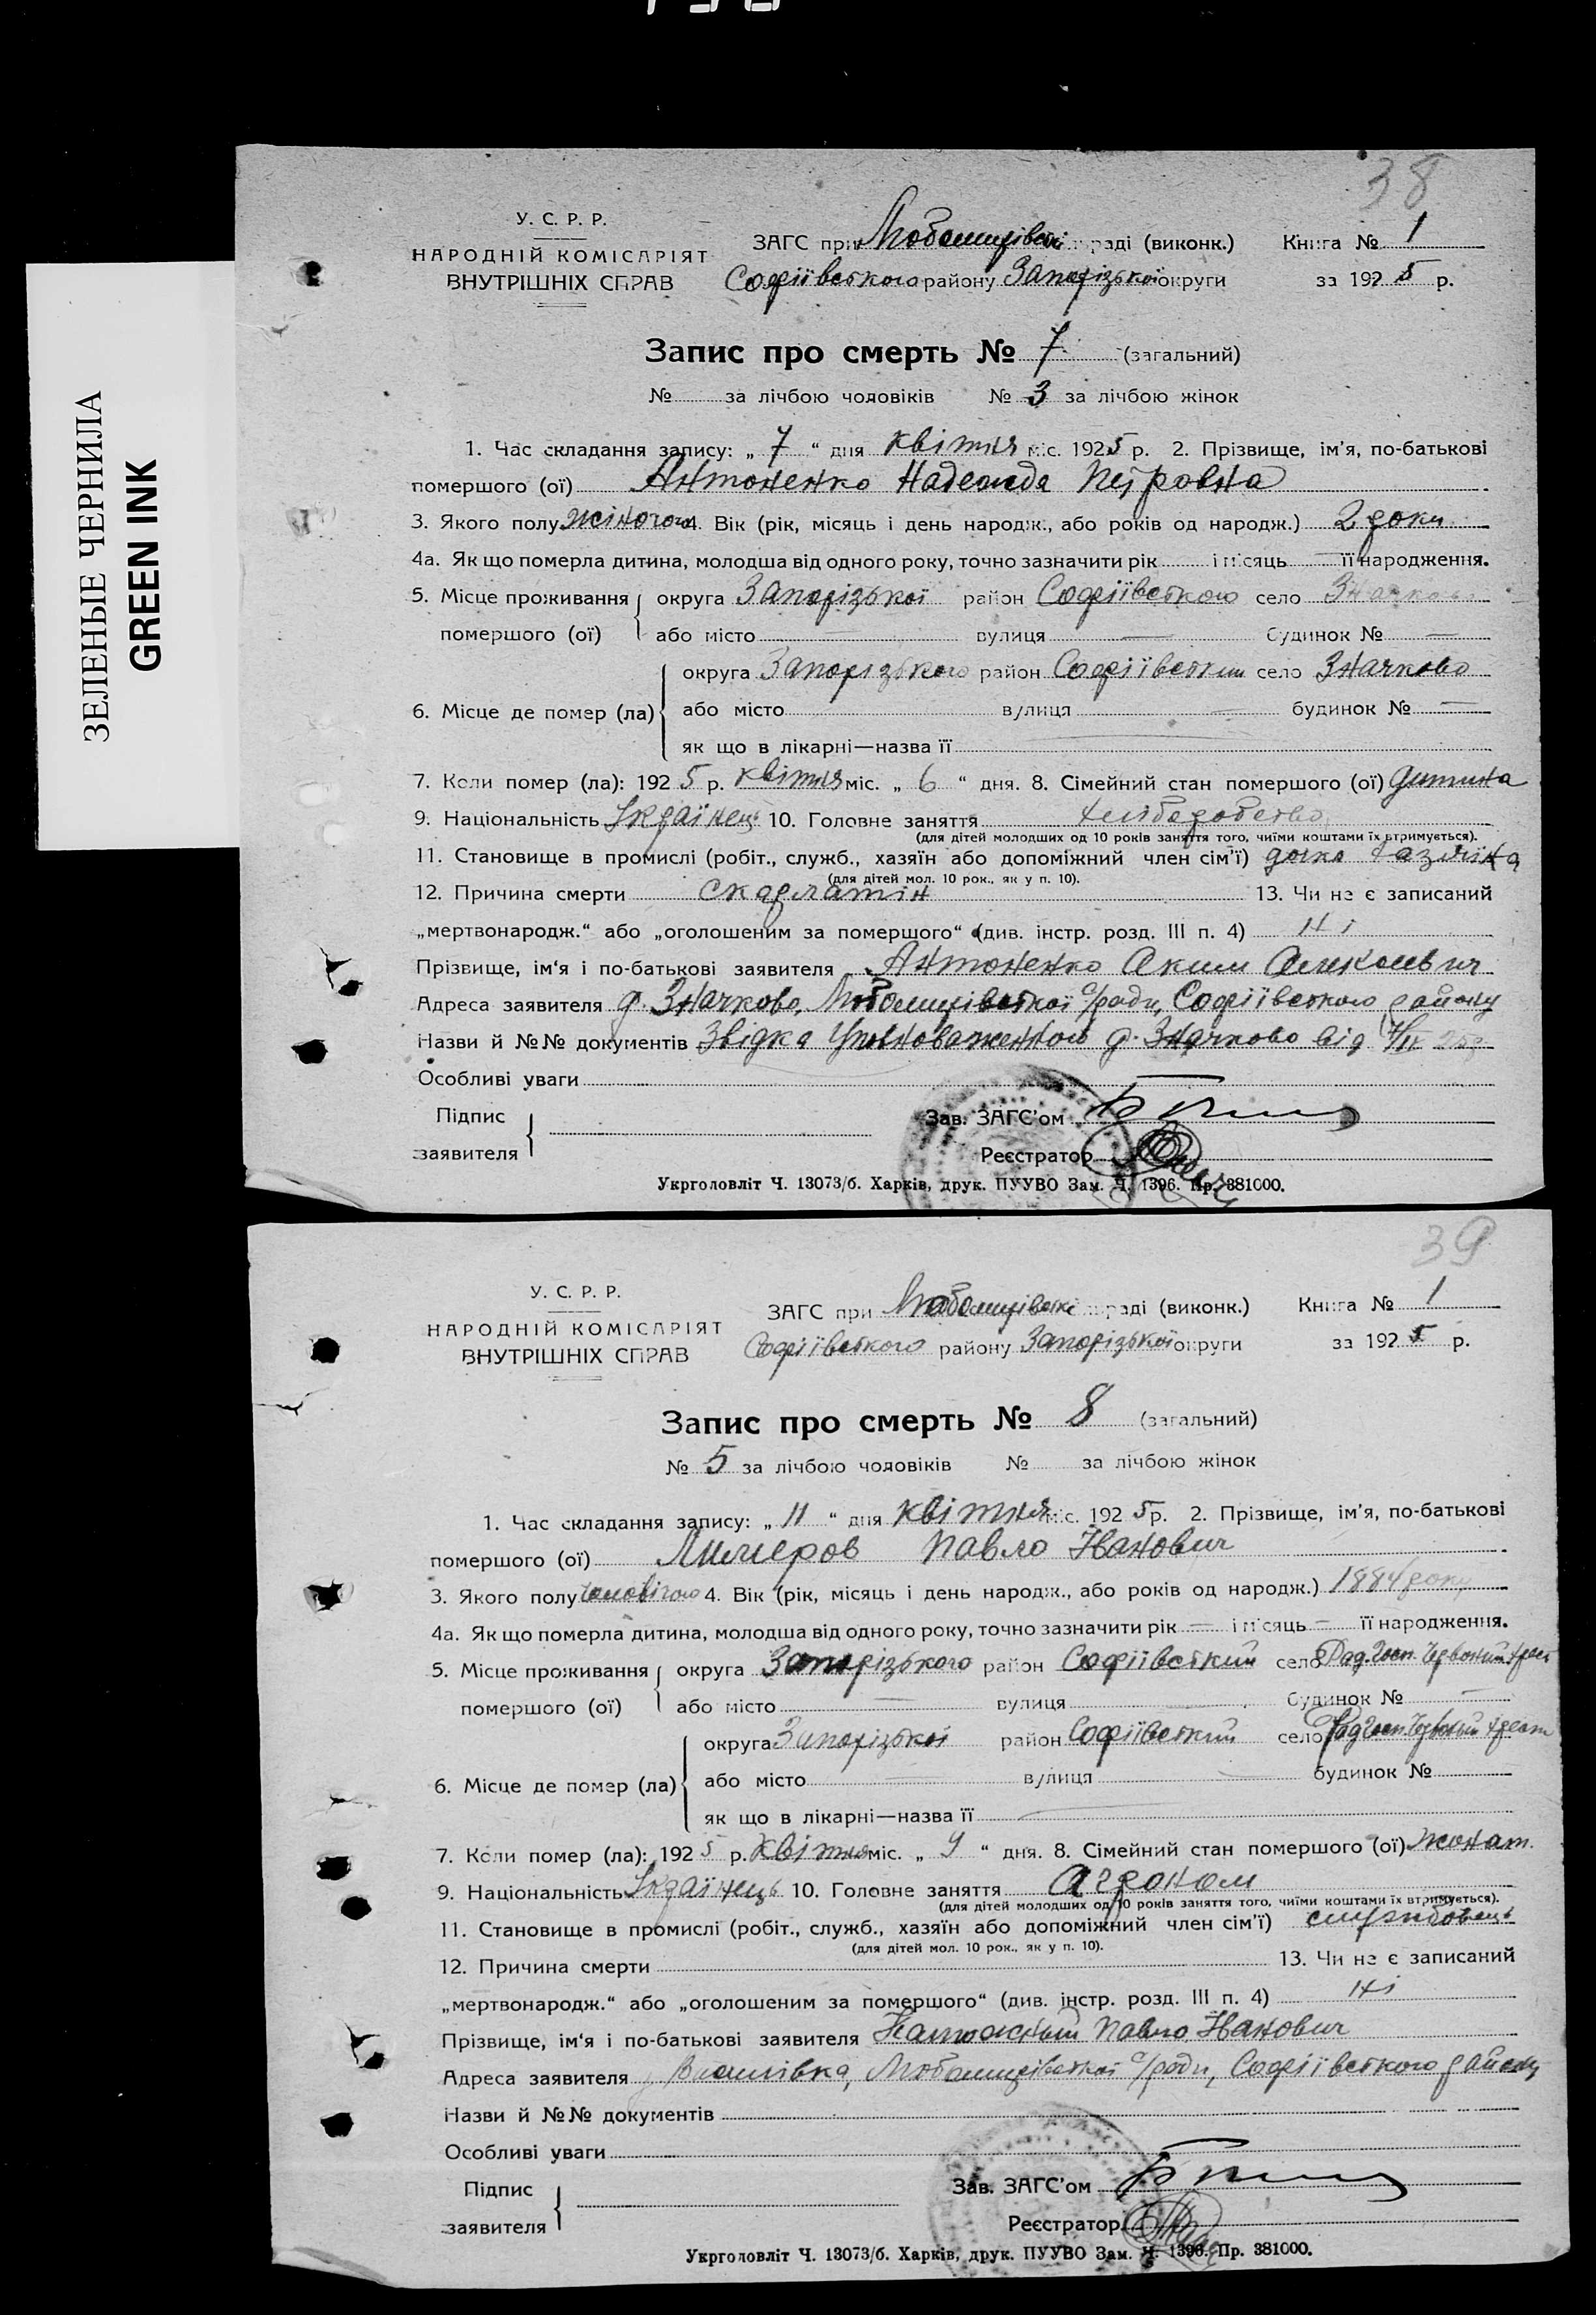 ЗЕЛЕНЫЕ ЧЕРНИЛА
GREEN INK
38
У. С. Р. Р.
НАРОДНІЙ КОМІСАРІЯТ
ВНУТРІШНІХ СПРАВ
ЗАГС при Любомирівській раді (виконк.) Книга № 1
Софіївського району Запорізької округи за 1925 р.
Запис про смерть № 7 (загальний)
№ за лічбою чоловіків № 3 за лічбою жінок
1. Час складання запису: „ 7 “ дня квітня міс. 1925 р. 2. Прізвище, ім'я, по-батькові
помершого (ої) Антоненко Надежда Петровна
3. Якого полу жіночого 4. Вік (рік, місяць і день народж., або років од народж.) 2 роки
4а. Як що померла дитина, молодша від одного року, точно зазначити рік і місяць її народження.
5. Місце проживання округа Запорізької район Софіївського село Значково
помершого (ої) або місто вулиця будинок №
округа Запорізького район Софіївський село Значково
6. Місце де помер (ла) або місто вулиця будинок №
як що в лікарні—назва її
7. Коли помер (ла): 1925 р. квітня міс. „ 6 “ дня. 8. Сімейний стан помершого (ої) дитина
9. Національність Українець 10. Головне заняття хліборобство
(для дітей молодших од 10 років заняття того, чиїми коштами їх втримується).
11. Становище в промислі (робіт., служб., хазяїн або допоміжний член сім'ї) дочка хазяїна
(для дітей мол. 10 рок., як у п. 10).
12. Причина смерти скарлатін 13. Чи не є записаний
„мертвонародж.“ або „оголошеним за помершого“ (див. інстр. розд. III п. 4) ні
Прізвище, ім'я і по-батькові заявителя Антоненко Аким
Адреса заявителя д. Значково, Любомирівської с/ради, Софіївського району
Назви й №№ документів Звідка Уповноваженного д. Значково від 7/IV
Особливі уваги
Підпис
заявителя
Зав. ЗАГС'ом
Реєстратор
Укрголовліт Ч. 13073/б. Харків, друк. ПУУВО Зам. Ч. 1396. Пр. 381000.
39
У. С. Р. Р.
НАРОДНІЙ КОМІСАРІЯТ
ВНУТРІШНІХ СПРАВ
ЗАГС при Любомирівські раді (виконк.) Книга № 1
Софіївського району Запорізької округи за 1925 р.
Запис про смерть № 8 (загальний)
№ 5 за лічбою чоловіків № за лічбою жінок
1. Час складання запису: „ 11 “ дня квітня міс. 1925 р. 2. Прізвище, ім'я, по-батькові
помершого (ої) Павло Іванович
3. Якого полу чоловічого 4. Вік (рік, місяць і день народж., або років од народж.) 1884 року
4а. Як що померла дитина, молодша від одного року, точно зазначити рік і місяць її народження.
5. Місце проживання округа Запорізького район Софіївський село Рад. Госп. Червоний
помершого (ої) або місто вулиця будинок №
округа Запорізької район Софіївський село Рад Госп. Червоний
6. Місце де помер (ла) або місто вулиця будинок №
як що в лікарні—назва її
7. Коли помер (ла): 1925 р. квітня міс. „ 9 “ дня. 8. Сімейний стан помершого (ої) жонат.
9. Національність Українець 10. Головне заняття агроном
(для дітей молодших од 10 років заняття того, чиїми коштами їх втримується).
11. Становище в промислі (робіт., служб., хазяїн або допоміжний член сім'ї) службовець
(для дітей мол. 10 рок., як у п. 10).
12. Причина смерти 13. Чи не є записаний
„мертвонародж.“ або „оголошеним за помершого“ (див. інстр. розд. III п. 4) ні
Прізвище, ім'я і по-батькові заявителя Павло Іванович
Адреса заявителя Любомирівської с/ради, Софіївського району
Назви й №№ документів
Особливі уваги
Підпис
заявителя
Зав. ЗАГС'ом
Реєстратор
Укрголовліт Ч. 13073/б. Харків, друк. ПУУВО Зам. Ч. 1396. Пр. 381000.